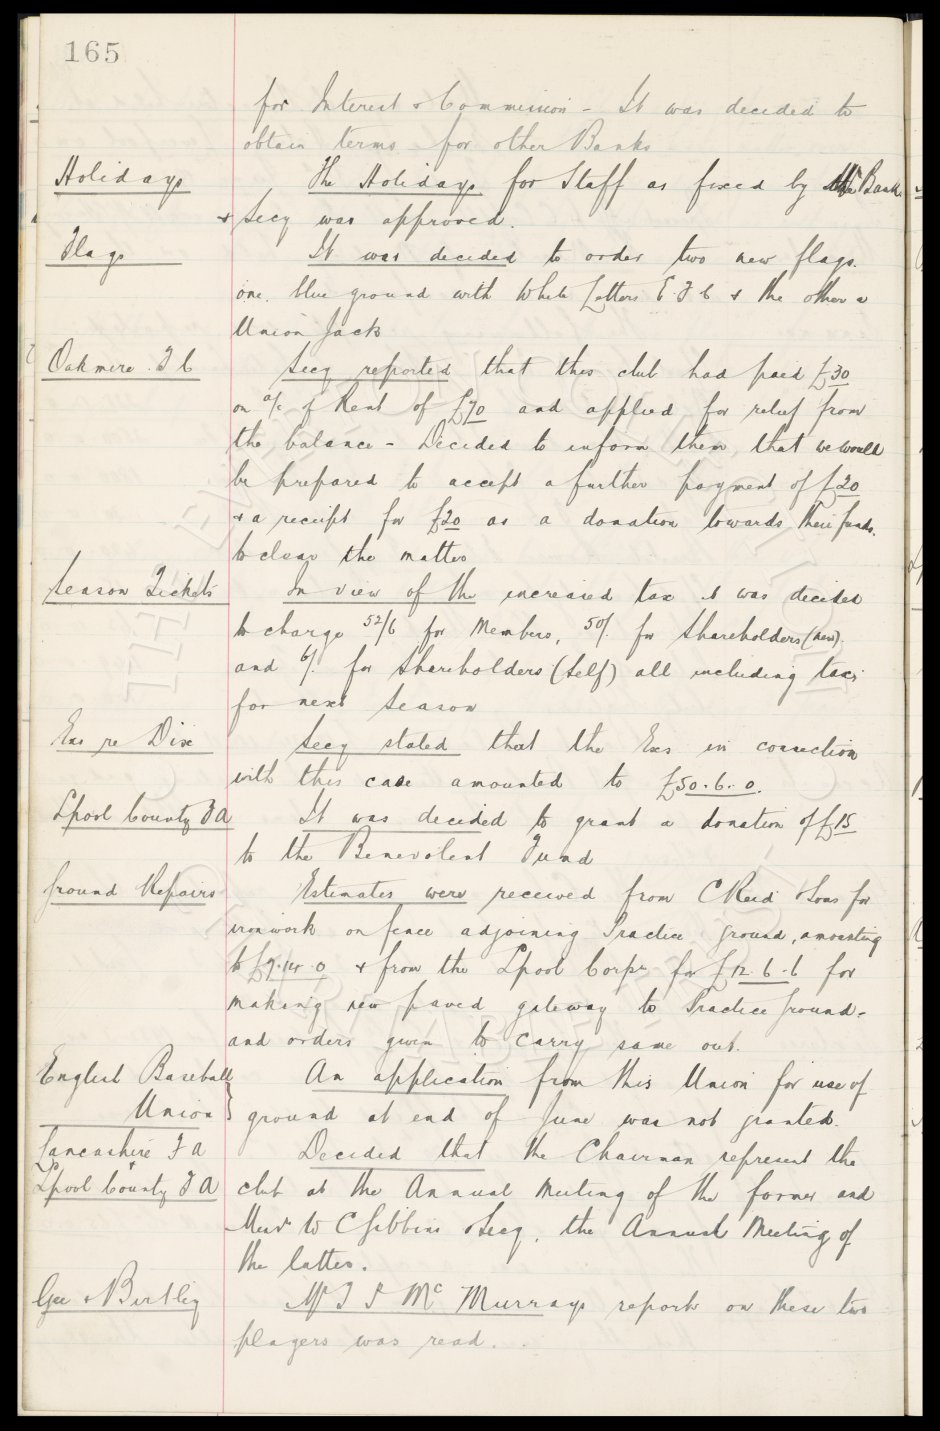 165
for Interest & Commission - It was decided to
obtain terms for other Banks
Holidays
The Holidays for Staff as fixed by the Bank
& Secy was approved.
Flags
It was decided to order two new flags.
one. blue ground with White Letters E F C & the other a
Union Jack
Oakmere. F C
Secy reported that this club had paid £30
on a/c of Rent of £70 and applied for relief from
the balance - Decided to inform them, that we would
be prepared to accept a further payment of £20
& a receipt for £20 as a donation towards their funds.
to clear the matter
Season Tickets
In view of the increased tax it was decided
to charge 52/6 for Members, 50/. for Shareholders (new).
and 6/. for Shareholders (Self) all including tax;
for next Season
Exs re Dix
Secy stated that the Exs in connection
with this case amounted to £50.6.0.
Lpool County F A
It was decided to grant a donation of £15
to the Benevolent Fund
Ground Repairs
Estimates were received from C Reid & Sons for
ironwork on fence adjoining Practice ground, amounting
to £9.14.0 & from the Lpool Corpn for £12.6.6 for
making new paved gateway to Practice ground -
and orders given to carry same out.
English Baseball
Union }
An application from this Union for use of
ground at end of June was not granted.
Lancashire F A
&
Lpool County F A
Decided that the Chairman represent the
club at the Annual Meeting of the former and
Messrs W C Gibbins & Secy, the Annual Meeting of
the latter.
Gee & Birtley
Mr T S McMurrays reports on these two
players was read.